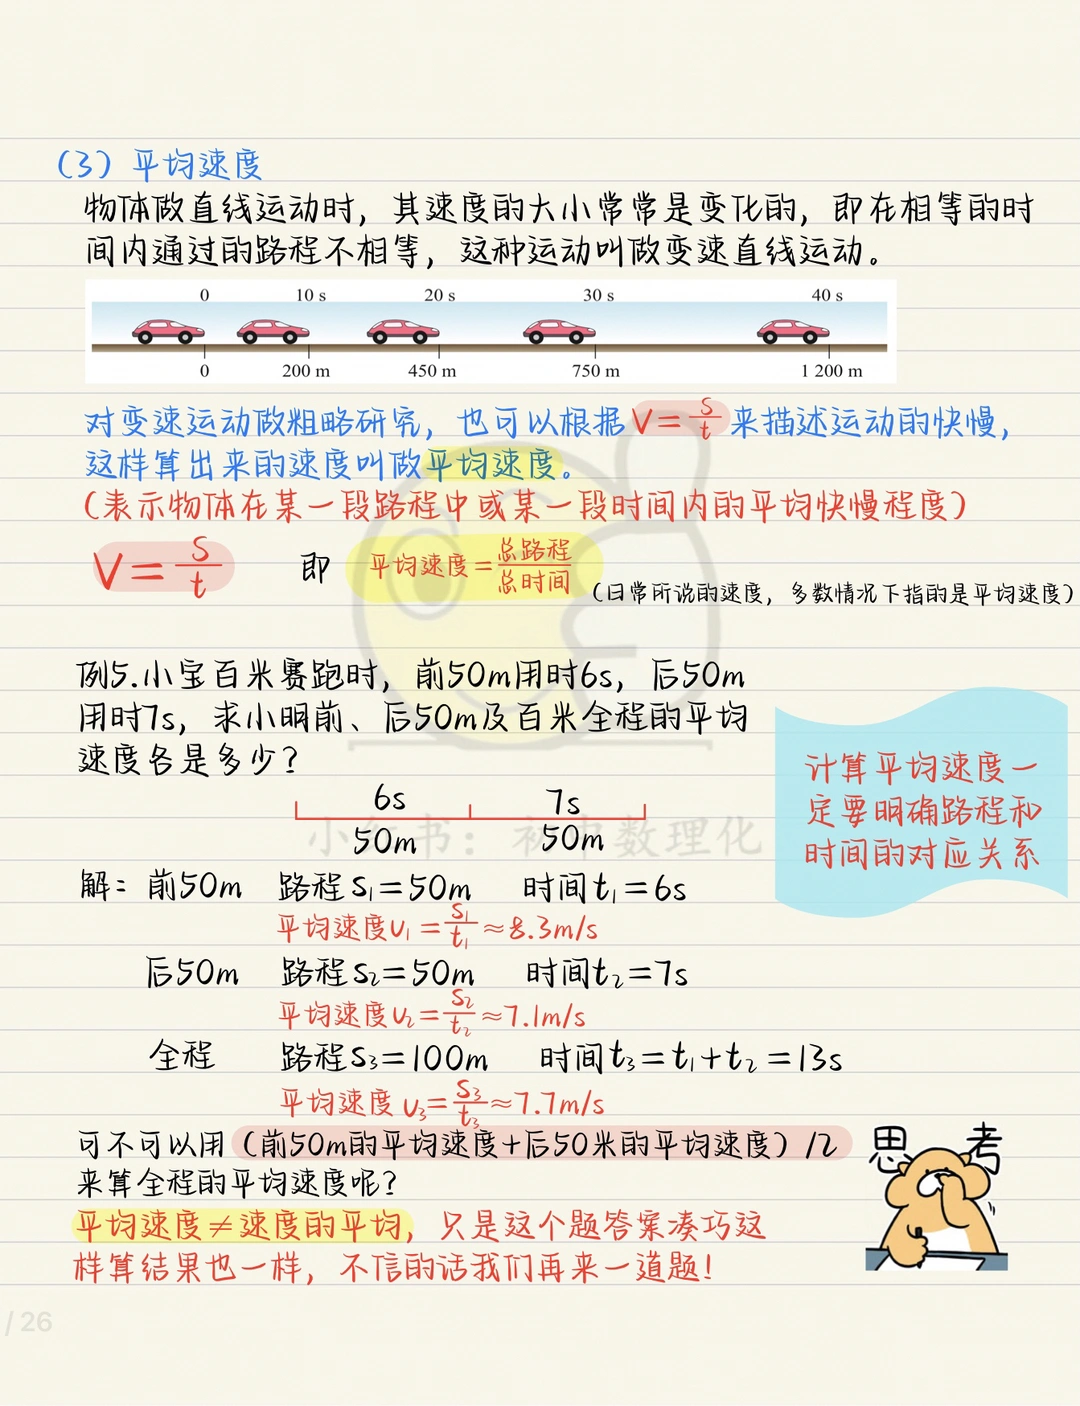 （3）平均速度
物体做直线运动时，其速度的大小常常是变化的，即在相等的时
间内通过的路程不相等，这种运动叫做变速直线运动。
0 10 s 20 s 30 s 40 s
0 200 m 450 m 750 m 1 200 m
对变速运动做粗略研究，也可以根据V=s/t来描述运动的快慢，
这样算出来的速度叫做平均速度。
（表示物体在某一段路程中或某一段时间内的平均快慢程度）
V=s/t 即 平均速度=总路程/总时间
（日常所说的速度，多数情况下指的是平均速度）
例5.小宝百米赛跑时，前50m用时6s，后50m
用时7s，求小明前、后50m及百米全程的平均
速度各是多少？
计算平均速度一
定要明确路程和
时间的对应关系
6s 7s
50m 50m
小红书：初中数理化
解：前50m 路程s₁=50m 时间t₁=6s
平均速度v₁=s₁/t₁≈8.3m/s
后50m 路程s₂=50m 时间t₂=7s
平均速度v₂=s₂/t₂≈7.1m/s
全程 路程s₃=100m 时间t₃=t₁+t₂=13s
平均速度v₃=s₃/t₃≈7.7m/s
可不可以用（前50m的平均速度+后50米的平均速度）/2
来算全程的平均速度呢？
思考
平均速度≠速度的平均，只是这个题答案凑巧这
样算结果也一样，不信的话我们再来一道题！
/ 26